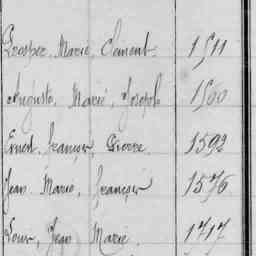 Prosper, Marie, Clément. 1511
Auguste, Marie, Joseph 1500
Ernest, François, Pierre. 1592
Jean Marie, François 1576
Louis, Jean Marie. 1717